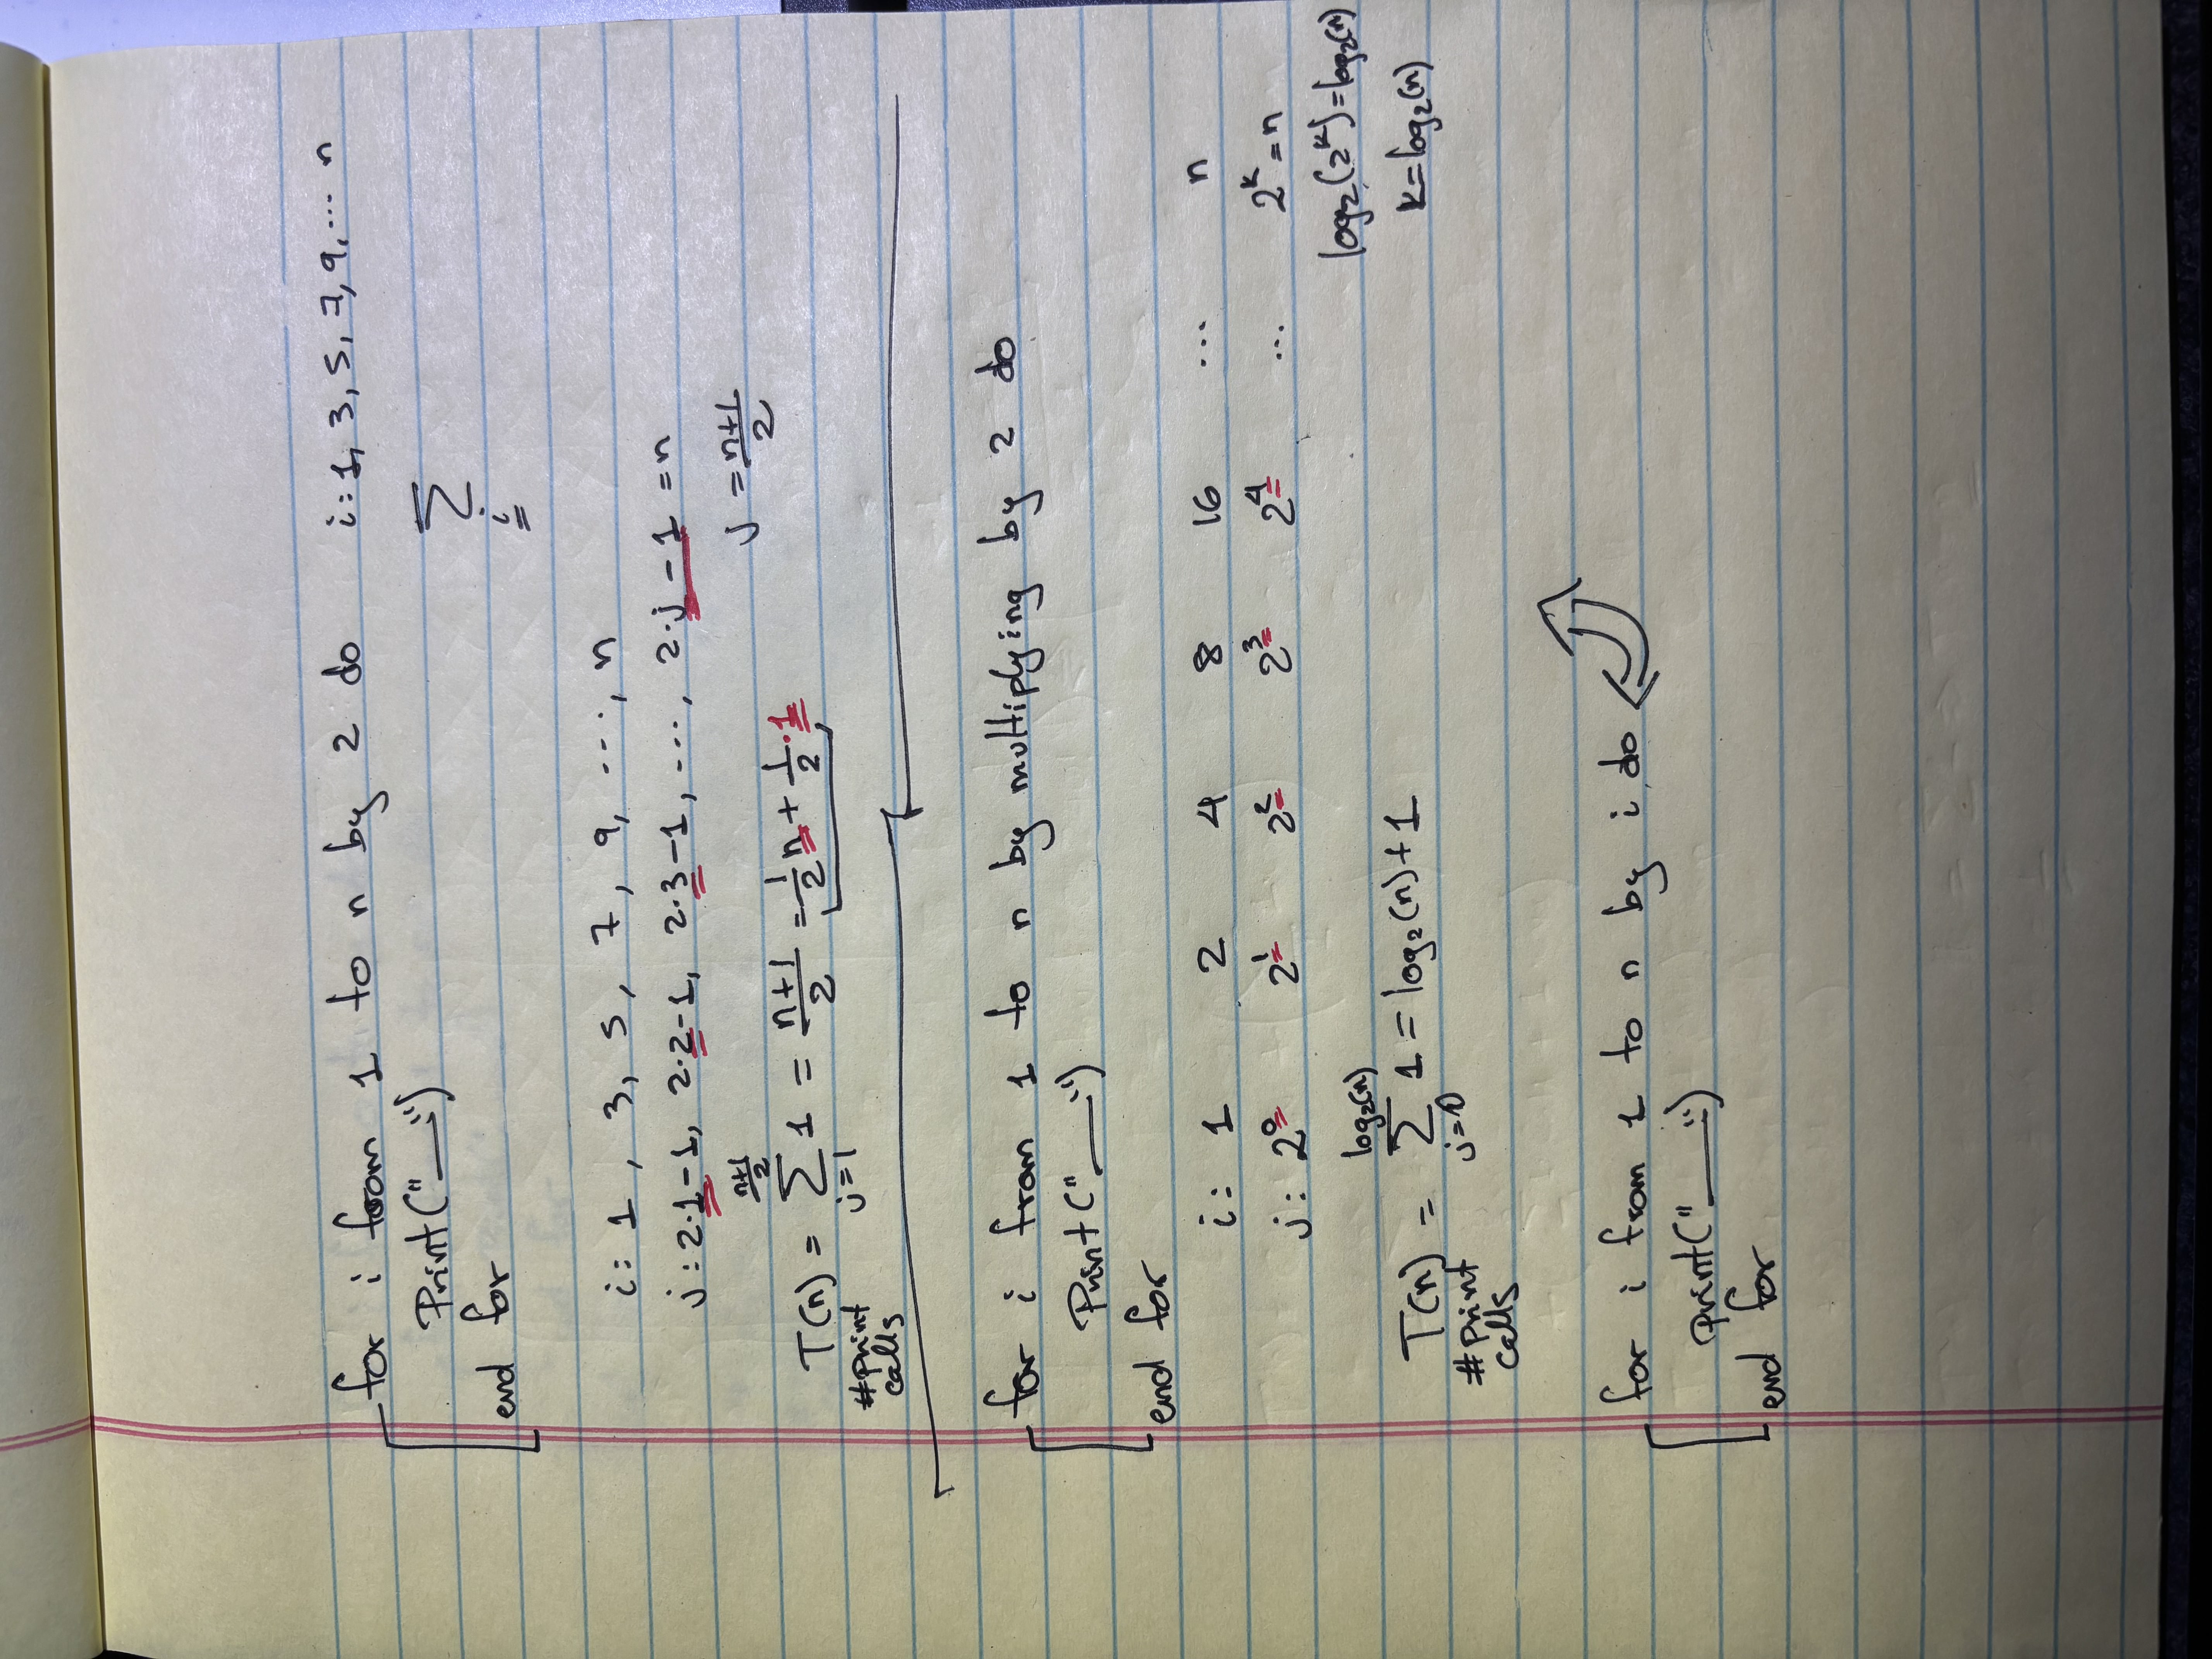 for i from 1 to n by 2 do i: 1, 3, 5, 7, 9, ... n
Print("__")
end for
∑
i
i: 1, 3, 5, 7, 9, ..., n
j: 2·1-1, 2·2-1, 2·3-1, ..., 2·j-1 = n
j = (n+1)/2
T(n) = ∑_{j=1}^{(n+1)/2} 1 = (n+1)/2 = 1/2 n + 1/2 · 1
#print
calls
for i from 1 to n by multiplying by 2 do
Print("__")
end for
i: 1 2 4 8 16 ... n
j: 2^0 2^1 2^2 2^3 2^4 ... 2^k = n
log₂(2^k) = log₂(n)
T(n) = ∑_{j=0}^{log₂(n)} 1 = log₂(n) + 1
k = log₂(n)
#print
calls
for i from 1 to n by i do
print("__")
end for